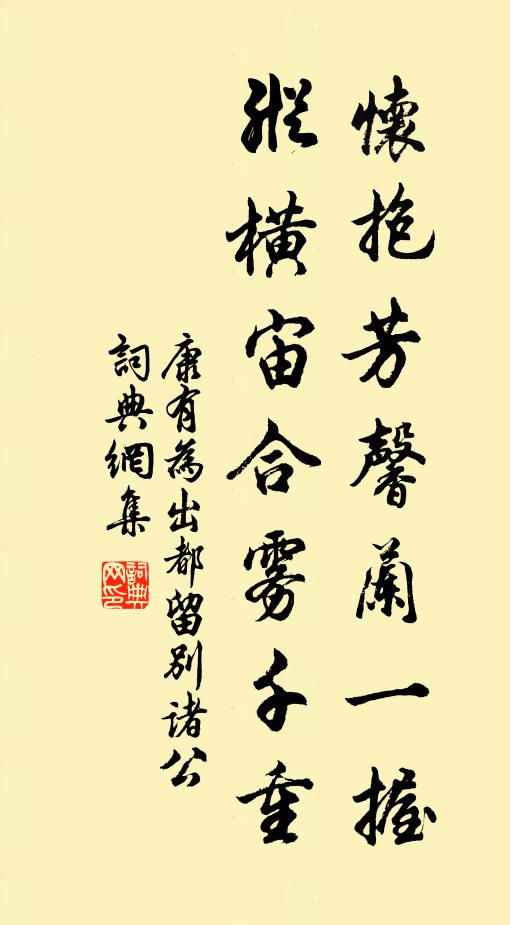 懷抱芳馨蘭一握
縱橫宙合雾千重
康有為出都留別諸公
詞典網集
詞典网印